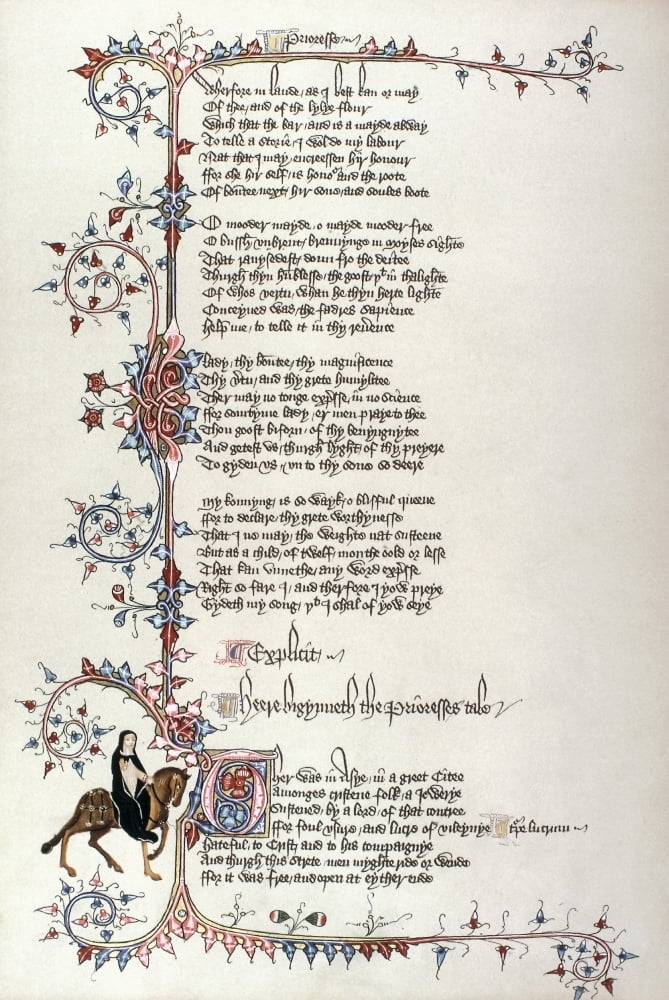 Prioresse
Wherfore in laude, as I best kan or may
Of thee, and of the lylye flour
Which that the bar, and is a mayde alway
To telle a storie, I wol do my labour
Nat that I may, encreessen hir honour
ffor she hir self, is honour and the roote
Of bountee next, hir sone, and soules boote
O mooder mayde, o mayde mooder free
O bussh, vnbrent, brennynge in Moyses sighte
That rauysedest, doun fro the deitee
Thurgh thyn humblesse, the goost þt in thalighte
Of whos vertu, whan he thyn herte lighte
Conceyued was, the fadres sapience
Help me, to telle it in thy reuerence
Lady, thy bountee, thy magnificence
Thy vertu, and thy grete humylitee
Ther may no tonge expresse, in no science
ffor somtyme lady, er men praye to thee
Thou goost biforn, of thy benyngnytee
And getest vs, thurgh lyght, of thy preyere
To gyden vs, vn to thy sone so deere
My konnyng, is so wayk, o blisful queene
ffor to declare, thy grete worthynesse
That I ne may, the weighte nat susteene
But as a child, of twelf monthe oold or lesse
That kan vnnethe, any word expresse
Right so fare I, and therfore I yow preye
Gydeth my song, þt I shal of yow seye
Explicit
Heere bigynneth the Prioresses tale
Ther was in Asye, in a greet Citee
Amonges cristene folk, a Jewerye
Sustened, by a lord, of that contree
ffor foul vsure, and lucre of vileynye turpe lucrum
hateful, to Crist, and to his compaignye
And thurgh this strete, men myghte ride or wende
ffor it was free, and open at eyther ende